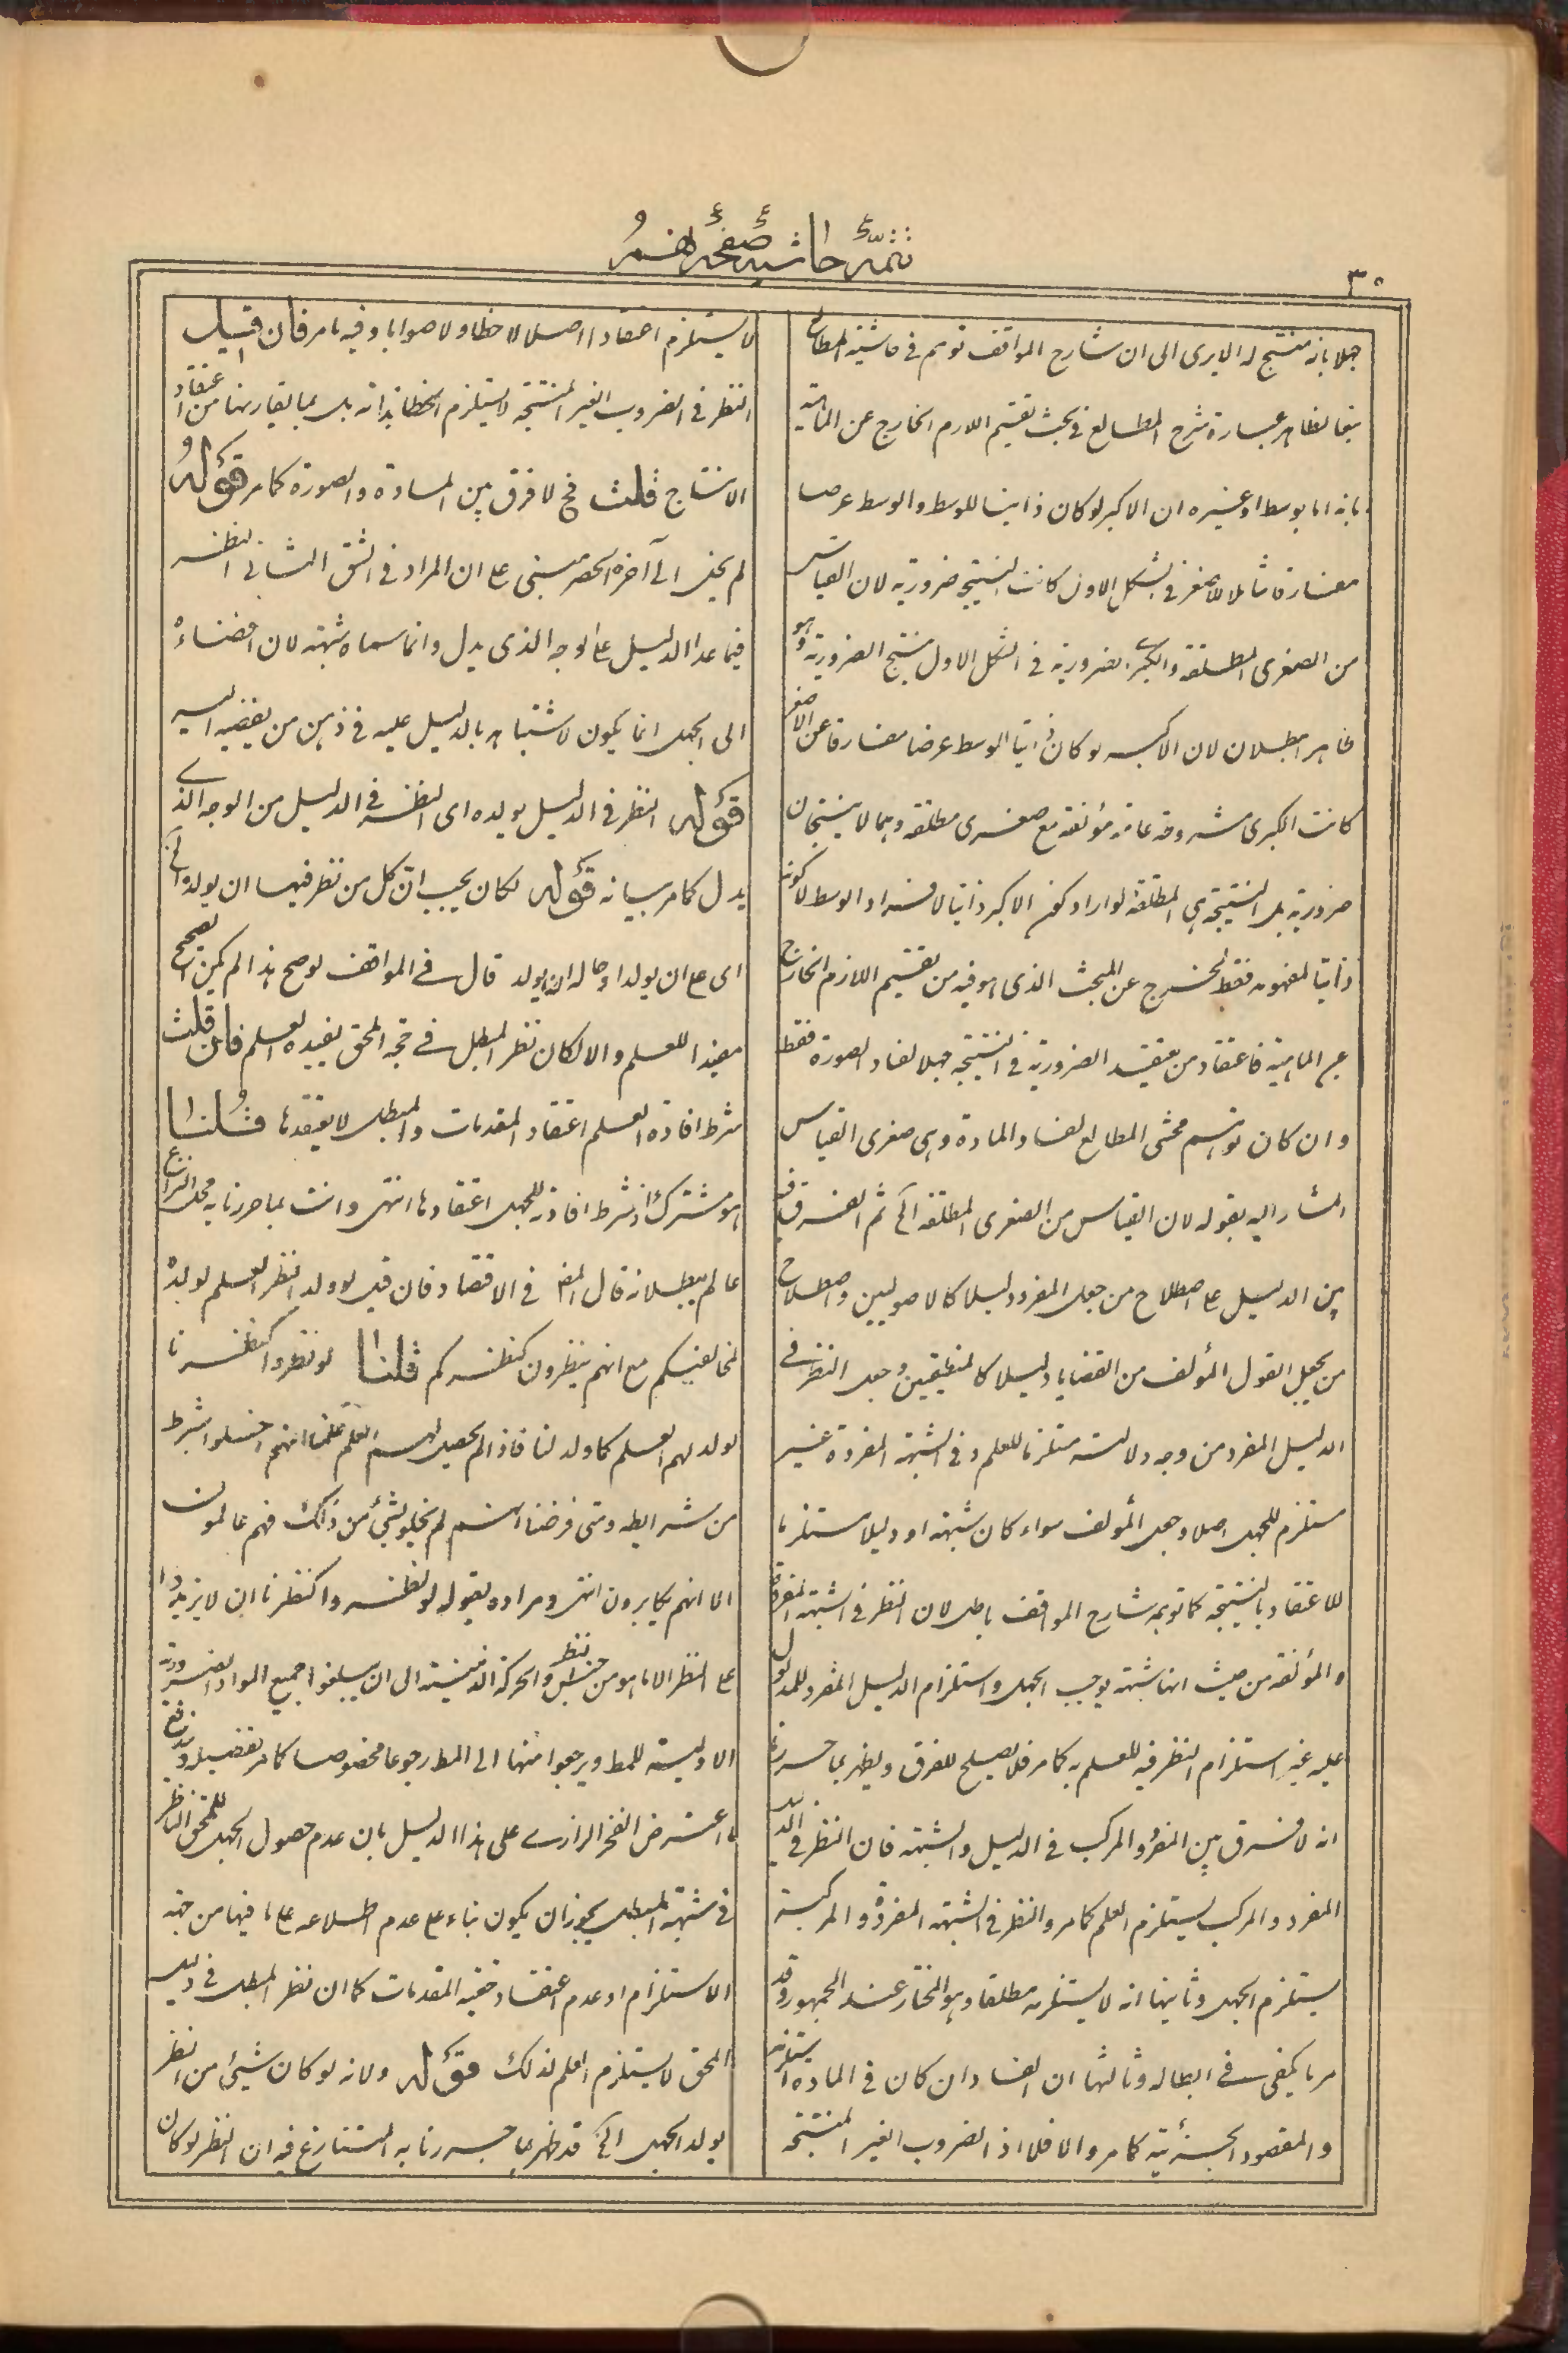 تتمۀ حاشیه صفحه نهم
۳۰
جهلا بانه منتج له الا يرى الى ان شارح المواقف توهم فى حاشية المطالع
تبعا لظاهر عبارة شرح المطالع فى بحث تقسيم اللازم الخارج عن الماهية
بانه اما بوسط او غيره ان الاكبر لو كان ذاتيا للوسط والوسط عرضا
مفارقا شاملا للاصغر فى الشكل الاول كانت النتيجة ضرورية لان القياس
من الصغرى المطلقة والكبرى الضرورية فى الشكل الاول ينتج الضرورية وهو
ظاهر البطلان لان الاكبر لو كان ذاتيا للوسط عرضا مفارقا عن الاصغر
كانت الكبرى مشروطة عامة مؤلفة مع صغرى مطلقة وهما لا ينتجان
ضرورية بل النتيجة هى المطلقة لو اراد كون الاكبر ذاتيا لافراد الوسط لا كونه
ذاتيا لمفهومه فقط لخرج عن المبحث الذى هو فيه من تقسيم اللازم الخارج
عن الماهية فاعتقاد من يعتقد الضرورية فى النتيجة جهلا لفساد الصورة فقط
وان كان توهم محشى المطالع لفساد المادة وهى صغرى القياس
المشار اليه بقوله لان القياس من الصغرى المطلقة الخ ثم الفرق
بين الدليل على اصطلاح من جعل المفرد دليلا كالاصوليين واصطلاح
من يجعل القول المؤلف من القضايا دليلا كالمنطقيين وجعل النظر فى
الدليل المفرد من وجه دلالته مستلزما للعلم وفى الشبهة المفردة غير
مستلزم للجهل اصلا وجعل المؤلف سواء كان شبهة او دليلا مستلزما
للاعتقاد بالنتيجة كما توهمه شارح المواقف باطل لان النظر فى الشبهة المفردة
والمؤلفة من حيث انها شبهة يوجب الجهل واستلزام الدليل المفرد للمدلول
عليه غير استلزام النظر فيه للعلم به كما مر فلا يصلح للفرق ويظهر بما حررنا
انه لا فرق بين المفرد والمركب فى الدليل والشبهة فان النظر فى الدليل
المفرد والمركب يستلزم العلم كما مر والنظر فى الشبهة المفردة والمركبة
يستلزم الجهل وثانيها انه لا يستلزمه مطلقا وهو المختار عند الجمهور وقد
مر ما يكفى فى ابطاله وثالثها ان الفساد ان كان فى المادة استلزمه
والمقصود الجزئية كما مر والا فلا اذ الضروب الغير المنتجة
لا يستلزم اعتقادا اصلا لا خطا ولا صوابا وفيه ما مر فان قيل
النظر فى الضروب الغير المنتجة لا يستلزم الخطا بذاته بل بما يقارنها من اعتقاد
الانتاج قلت فح لا فرق بين المادة والصورة كما مر قوله
لم يخف الى آخره الحصر مبنى على ان المراد فى الشق الثانى النظر
فيما عدا الدليل على الوجه الذى يدل وانما سماه شبهة لان افضاءه
الى الجهل انما يكون لاشتباهه بالدليل عليه فى ذهن من يفضيه اليه
قوله النظر فى الدليل يولده اى النظر فى الدليل من الوجه الذى
يدل كما مر بيانه قوله لكان يجب ان كل من نظر فيها ان يولد الخ
اى على ان يولد او حاله ان يولد قال فى المواقف لو صح هذا لم يكن الصحيح
مفيدا للعلم والا لكان نظر المبطل فى حجة المحق يفيده العلم فان قلت
شرط افادة العلم اعتقاد المقدمات والمبطل لا يعتقدها قلنا
هو مشترك اذ شرط افادته للجهل اعتقادها انتهى وانت بما حررنا به محل النزاع
عالم ببطلانه قال المص فى الاقتصاد فان قيل لو ولد النظر العلم لولده
لمخالفيكم مع انهم ينظرون كنظركم قلنا لو نظروا كنظرنا
لولد لهم العلم كما ولد لنا فاذا لم يحصل لهم العلم علمنا انهم اخلوا بشرط
من شرايطه ومتى فرضنا انهم لم يخلوا بشئ من ذلك فهم عالمون
الا انهم يكابرون انتهى ومراده بقوله لو نظروا كنظرنا ان لا يزيدوا
على النظر الا ما هو من جنس النظر والحركة الذهنية الى ان يبلغوا جميع المواد الضرورية
الاولية للمط ويرجعوا منها الى المط رجوعا مخصوصا كما مر تفصيله ويندفع
ما اعترض الفخر الرازى على هذا الدليل بان عدم حصول الجهل للمحق الناظر
فى شبهة المبطل يجوز ان يكون بناء على عدم اطلاعه على ما فيها من جهة
الاستلزام او عدم اعتقاد حقية المقدمات كما ان نظر المبطل فى دليل
المحق لا يستلزم العلم لذلك قوله ولانه لو كان شيئ من النظر
يولد الجهل الخ قد ظهر بما حررنا به المتنازع فيه ان النظر لو كان